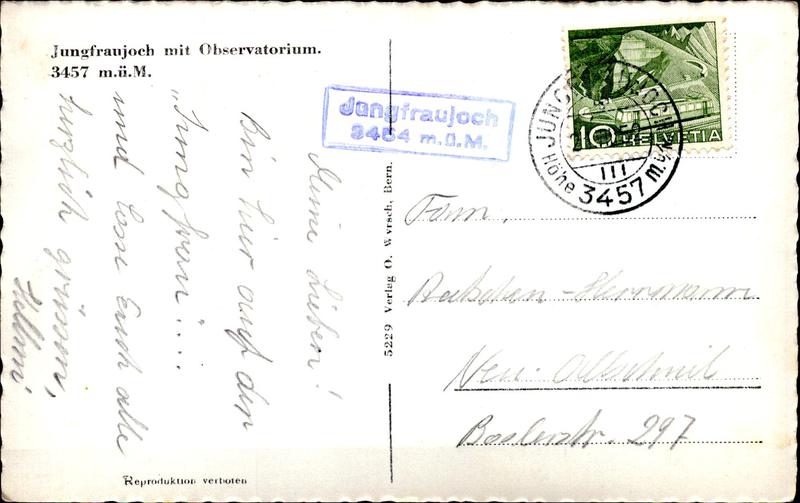 Jungfraujoch mit Observatorium.
3457 m.ü.M.
Jungfraujoch
3454 m.ü.M.
10 HELVETIA
JUNGFRAUJOCH
Höhe 3457 m.ü.M.
III
Meine Lieben!
Bin hier auf der
"Jungfrau"....
und lasse Euch alle
herzlich grüssen,
5229 Verlag O. Wyrsch, Bern.
Fam.
Herrmann
Neu-Allschwil
Baslerstr. 297
Reproduktion verboten